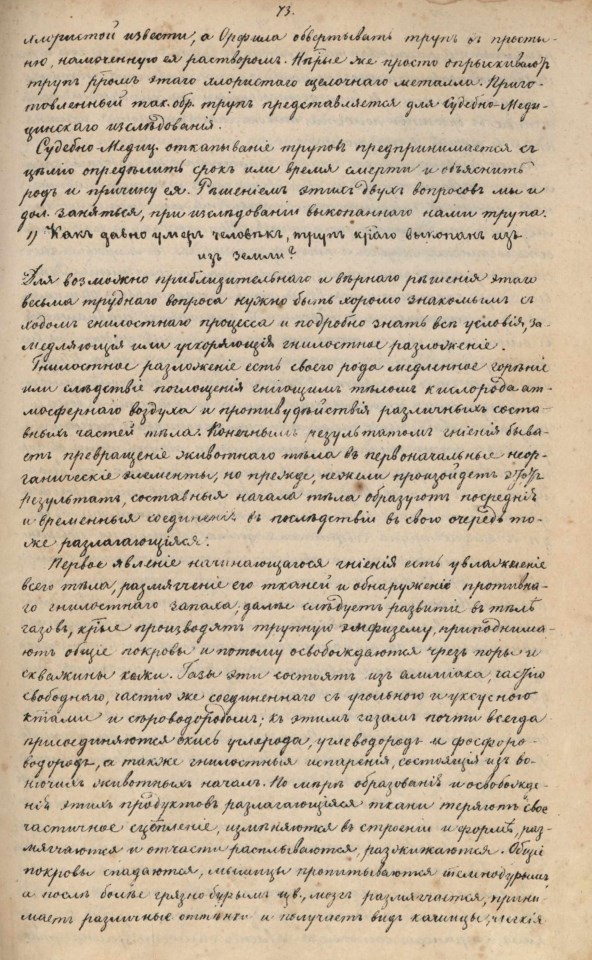 73.
хлористой извести, а Орфила обвертывать трупъ въ просты-
ню, намоченную ея растворомъ. Нѣкрые же просто опрыскивалютъ
трупъ рромъ этаго хлористаго щелочнаго металла. Приго-
товленный так. обр. трупъ представляется для Судебно-Меди-
цинскаго изслѣдованія.
Судебно-Медиц. откапываніе труповъ предпринимается съ
цѣлію опредѣлить срокъ или время смерти и объяснить
родъ и причину ея. Рѣшеніемъ этихъ двухъ вопросовъ мы и
дол. заняться, при изслѣдованіи выкопаннаго нами трупа.
1) Какъ давно умеръ человѣкъ, трупъ кцаго выкопанъ изъ
изъ земли?
Для возможно приблизительнаго и вѣрнаго рѣшенія этаго
весьма труднаго вопроса нужно быть хорошо знакомымъ съ
ходомъ гнилостнаго процесса и подробно знать всѣ условія, за-
медляющія или ускоряющія гнилостное разложеніе.
Гнилостное разложеніе есть своего рода медленное горѣніе
или слѣдствіе поглощенія гніющимъ тѣломъ кислорода ат-
мосфернаго воздуха и противудѣйствія различныхъ соста-
вныхъ частей тѣла. Конечнымъ результатомъ гніенія быва-
етъ превращеніе животнаго тѣла въ первоначальные неор-
ганическіе элементы, но прежде, нежели произойдетъ этотъ
результатъ, составныя начала тѣла образуютъ посредній
и временныя соединенія въ послѣдствіи въ свою очередь то-
же разлагающіяся.
Первое явленіе начинающагося гніенія есть увлажненіе
всего тѣла, размягченіе его тканей и обнаруженіе противна-
го гнилостнаго запаха; далѣе слѣдуетъ развитіе въ тѣлѣ
газовъ, крые производятъ трупную эмфизему, приподнима-
ютъ общіе покровы и потому освобождаются чрезъ поры и
скважины кожи. Газы эти состоятъ изъ амміака, частію
свободнаго, частію же соединеннаго съ угольною и уксусною
ктами и сѣроводородомъ; къ этимъ газамъ почти всегда
присоединяются окись углерода, углеводородъ и фосфоро-
водородъ, а также гнилостныя испаренія, состоящія изъ во-
нючихъ животныхъ началъ. По мѣрѣ образованія и освобожде-
нія этихъ продуктовъ разлагающіяся ткани теряютъ свое
частичное сцѣпленіе, измѣняются въ строеніи и формѣ, раз-
мягчаются и отчасти расплываются, разжижаются. Общіе
покровы спадаются, мышицы пропитываются темнобурымъ
а послѣ болѣе грязно-бурымъ цв., мозгъ размягчается, прини-
маетъ различные оттѣнки и получаетъ видъ кашицы; легкія